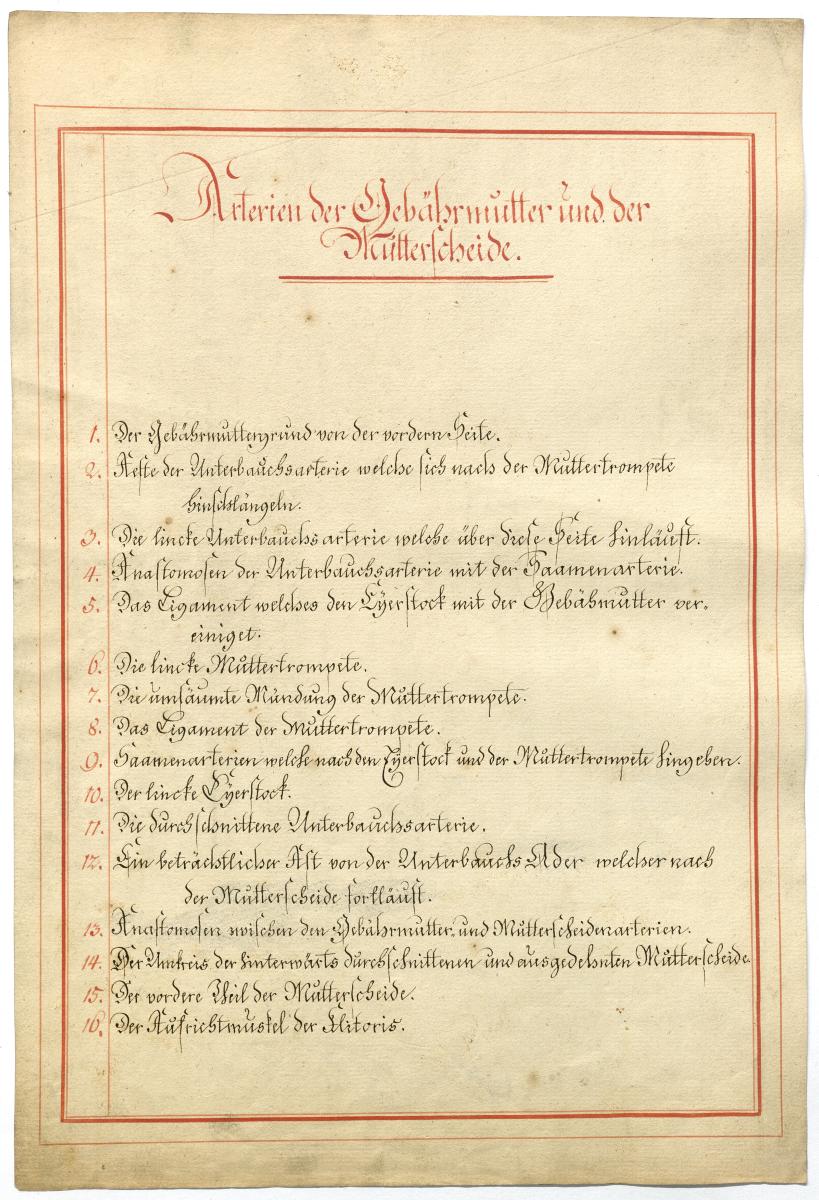 Arterien der Gebährmutter und der
Mutterscheide.
1. Der Gebährmuttergrund von der vordern Seite.
2. Aeste der Unterbauchsarterie welche sich nach der Muttertrompete
hinschlängeln.
3. Die lincke Unterbauchsarterie welche über diese Seite hinläuft.
4. Anastomosen der Unterbauchsarterie mit der Saamenarterie.
5. Das Ligament welches den Eyerstock mit der Gebähmutter ver,
einiget.
6. Die lincke Muttertrompete.
7. Die umsäumte Mündung der Muttertrompete.
8. Das Ligament der Muttertrompete.
9. Saamenarterien welche nach den Eyerstock und der Muttertrompete hingehen.
10. Der lincke Eyerstock.
11. Die durchschnittene Unterbauchsarterie.
12. Ein beträchtlicher Ast von der Unterbauchs Ader welcher nach
der Mutterscheide fortläuft.
13. Anastomosen zwischen den Gebährmutter, und Mutterscheidenarterien.
14. Der Umkreis der hinterwärts durchschnittenen und ausgedehnten Mutterscheide.
15. Der vordere Theil der Mutterscheide.
16. Der Aufrichtmuskel der Klitoris.